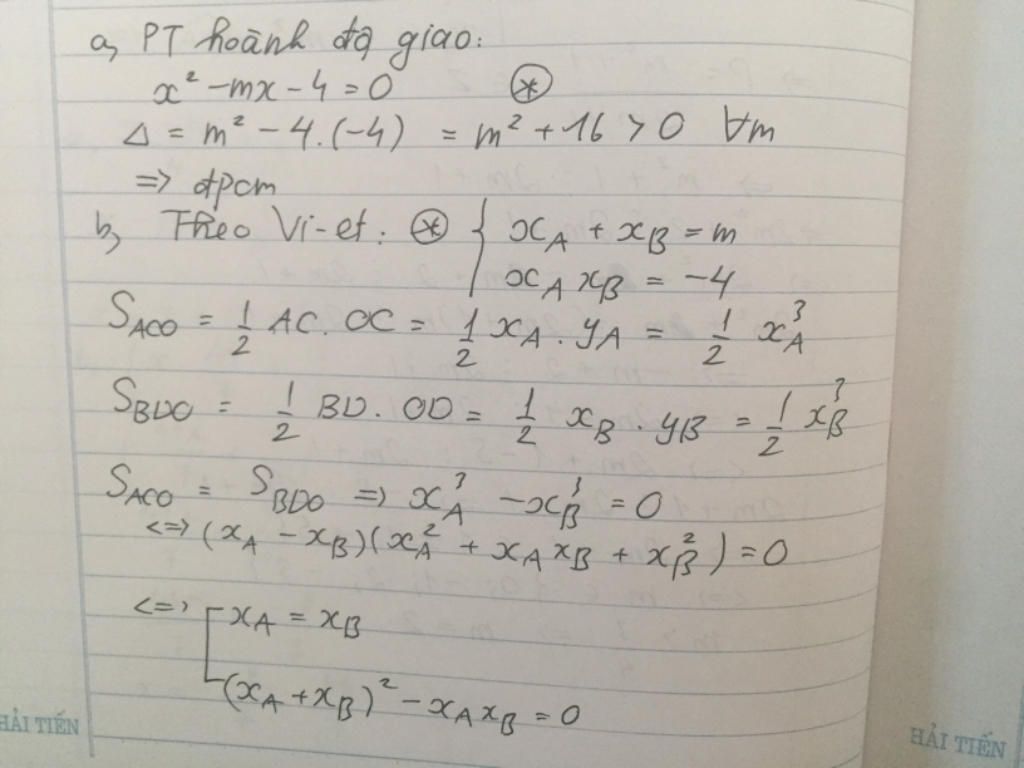 a, PT hoành độ giao:
x² - mx - 4 = 0 (*)
Δ = m² - 4.(-4) = m² + 16 > 0 ∀m
=> đpcm
b, Theo Vi-et: (*) { x_A + x_B = m
x_A x_B = -4
S_ACO = 1/2 AC. OC = 1/2 x_A . y_A = 1/2 x_A³
S_BDO = 1/2 BD. OD = 1/2 x_B . y_B = 1/2 x_B³
S_ACO = S_BDO => x_A³ - x_B³ = 0
<=> (x_A - x_B)(x_A² + x_A x_B + x_B²) = 0
<=> [ x_A = x_B
(x_A + x_B)² - x_A x_B = 0
HẢI TIẾN
HẢI TIẾN